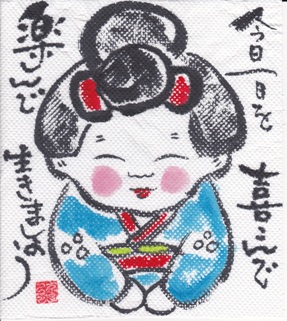 今日一日を
喜んで
楽しんで
生きましょう